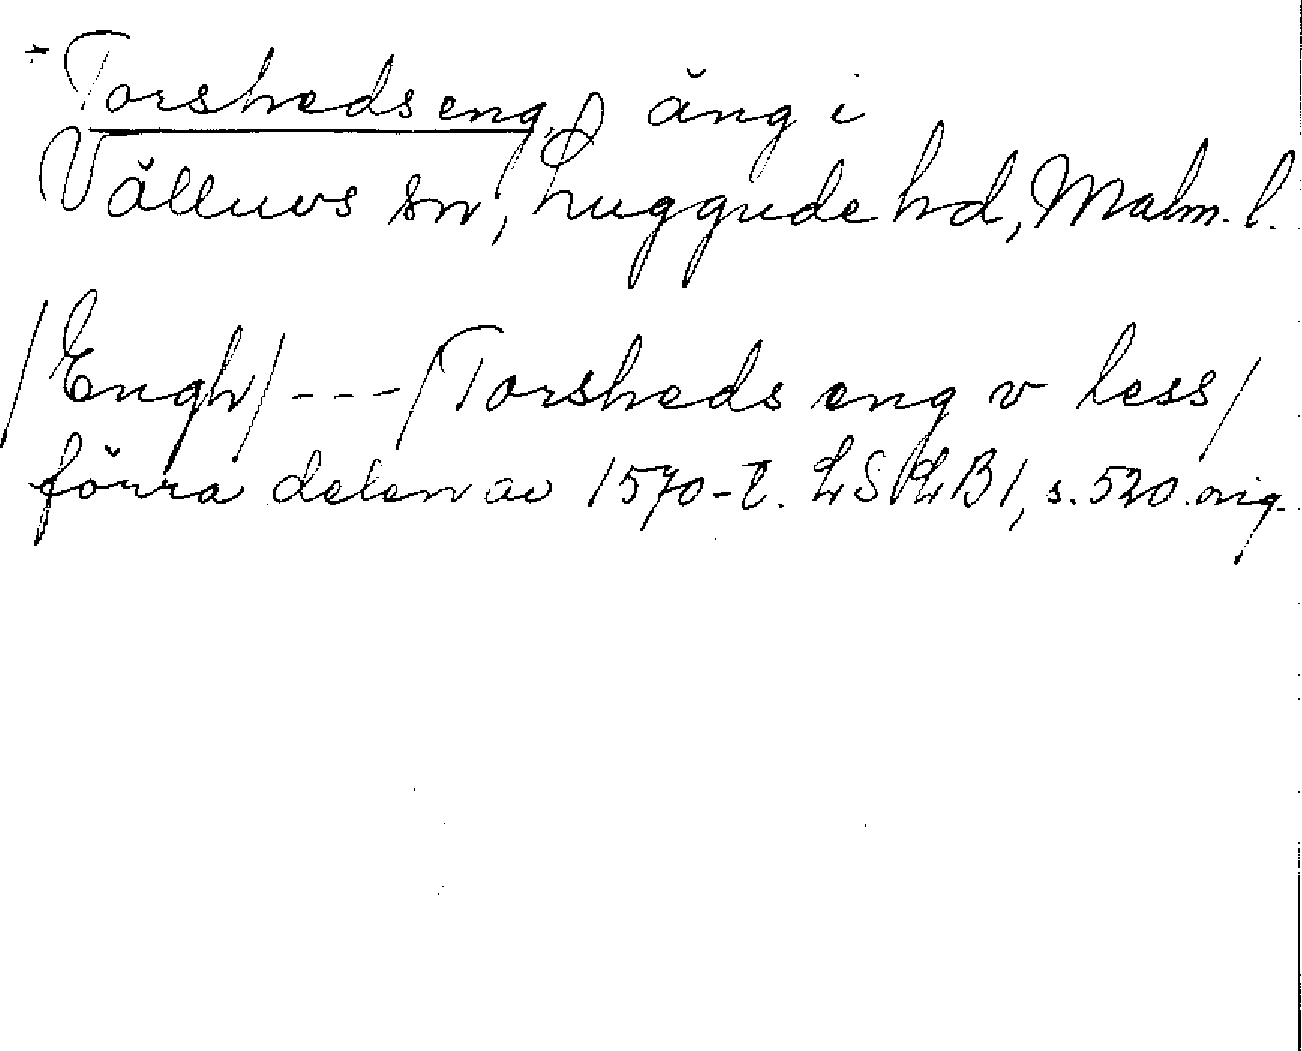 +Torshedseng, äng i
Välluvs sn, Luggude hd, Malm. l.
/Engh/---/Torsheds eng v less/
förra delen av 1570-t. LSLB 1, s. 520. orig.